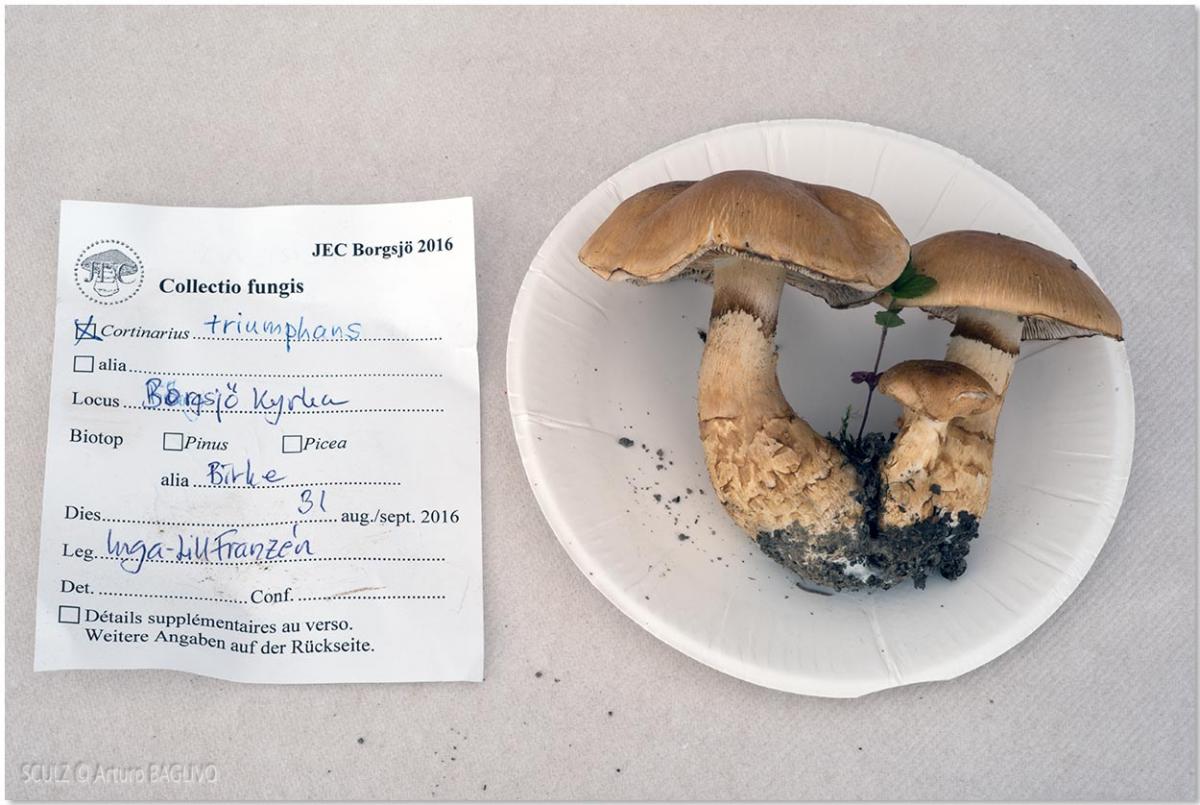 JEC Borgsjö 2016
JEC
Collectio fungis
Cortinarius triumphans
alia
Locus Borgsjö Kyrka
Biotop Pinus Picea
alia Birke
Dies 31 aug./sept. 2016
Leg. Inga-Lill Franzén
Det. Conf.
Détails supplémentaires au verso.
Weitere Angaben auf der Rückseite.
SCULZ © Arturo BAGLIVO